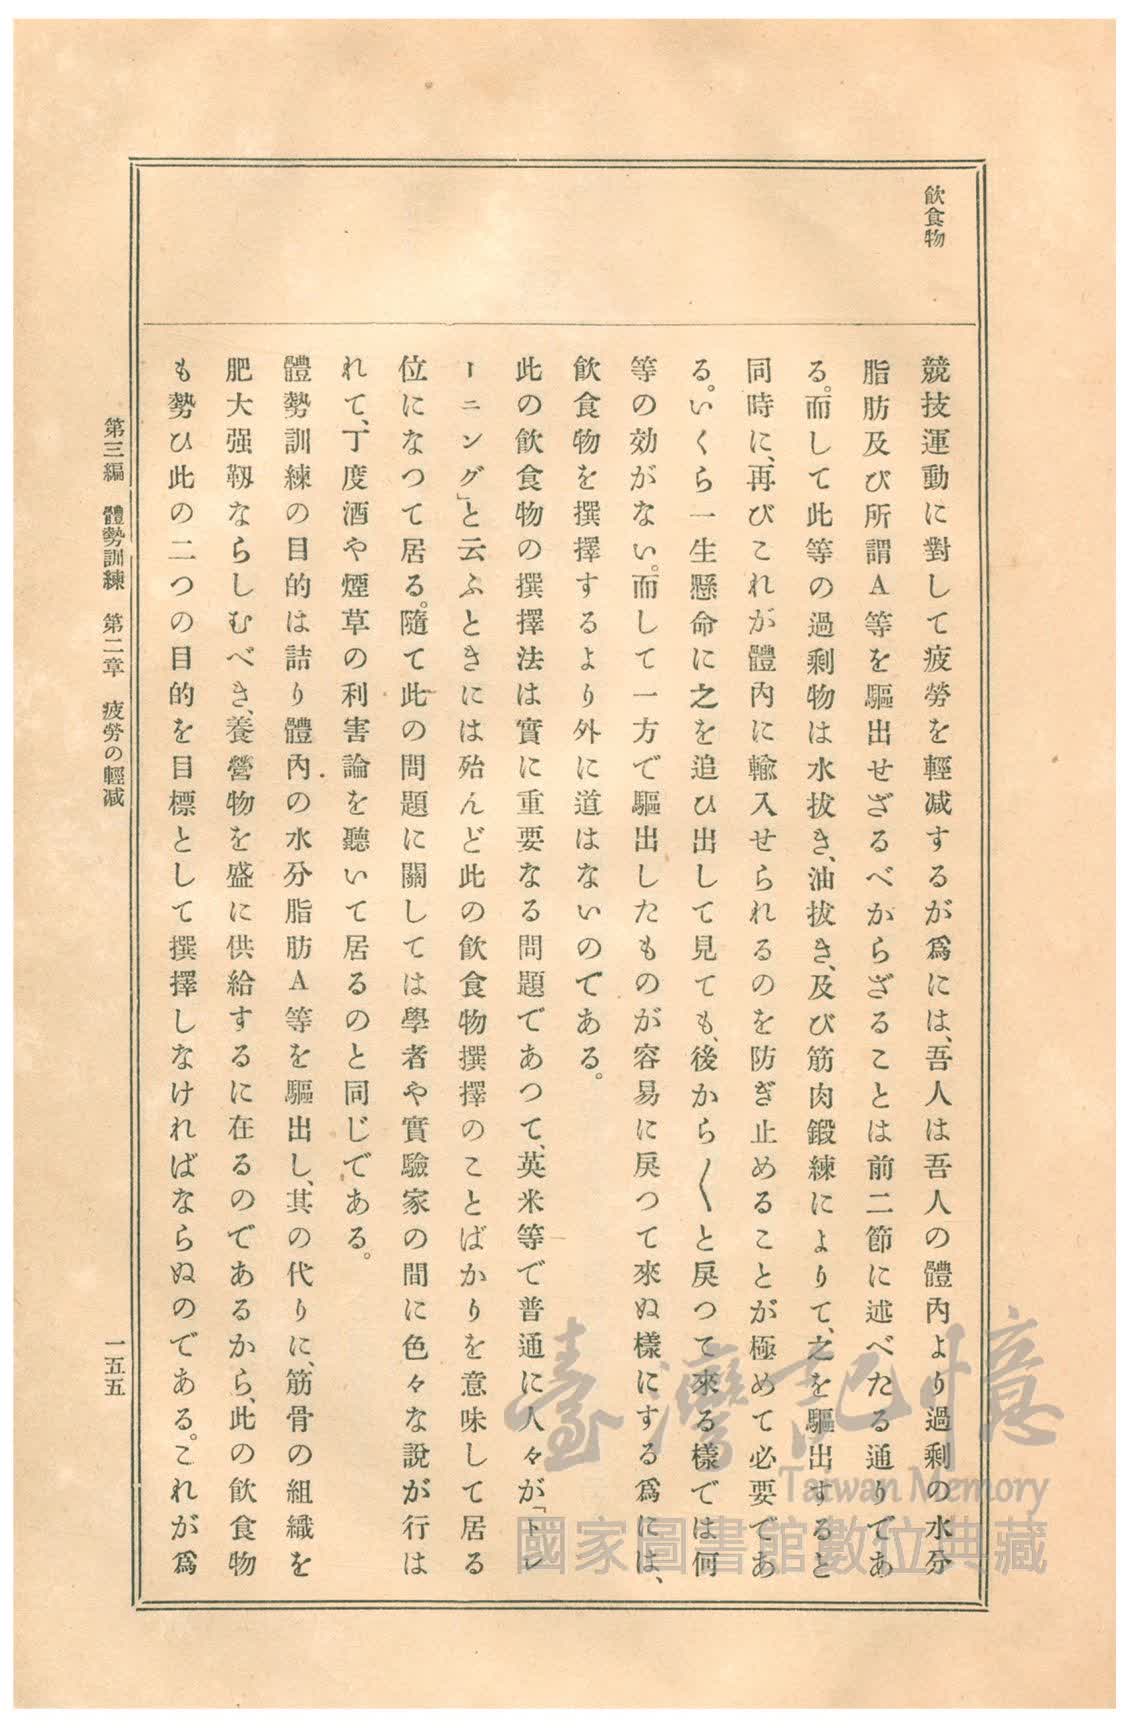 飮食物
競技運動に對して疲勞を輕減するが爲には、吾人は吾人の體內より過剩の水分
脂肪及び所謂A等を驅出せざるべからざることは前二節に述べたる通りであ
る。而して此等の過剩物は水拔き、油拔き、及び筋肉鍛練によりて、之を驅出すると
同時に、再びこれが體內に輸入せられるのを防ぎ止めることが極めて必要であ
る。いくら一生懸命に之を追ひ出して見ても、後から〱と戾つて來る樣では何
等の効がない。而して一方で驅出したものが容易に戾つて來ぬ樣にする爲には、
飮食物を撰擇するより外に道はないのである。
此の飮食物の撰擇法は實に重要なる問題であつて、英米等で普通に人々が「トレ
ーニング」と云ふときには殆んど此の飮食物撰擇のことばかりを意味して居る
位になつて居る。隨て此の問題に關しては學者や實驗家の間に色々な說が行は
れて、丁度酒や煙草の利害論を聽いて居るのと同じである。
體勢訓練の目的は詰り體內の水分脂肪A等を驅出し、其の代りに、筋骨の組織を
肥大强靱ならしむべき、養營物を盛に供給するに在るのであるから、此の飮食物
も勢ひ此の二つの目的を目標として撰擇しなければならぬのである。これが爲
第三編　體勢訓練　第二章　疲勞の輕減
一五五
臺灣記憶
Taiwan Memory
國家圖書館數位典藏